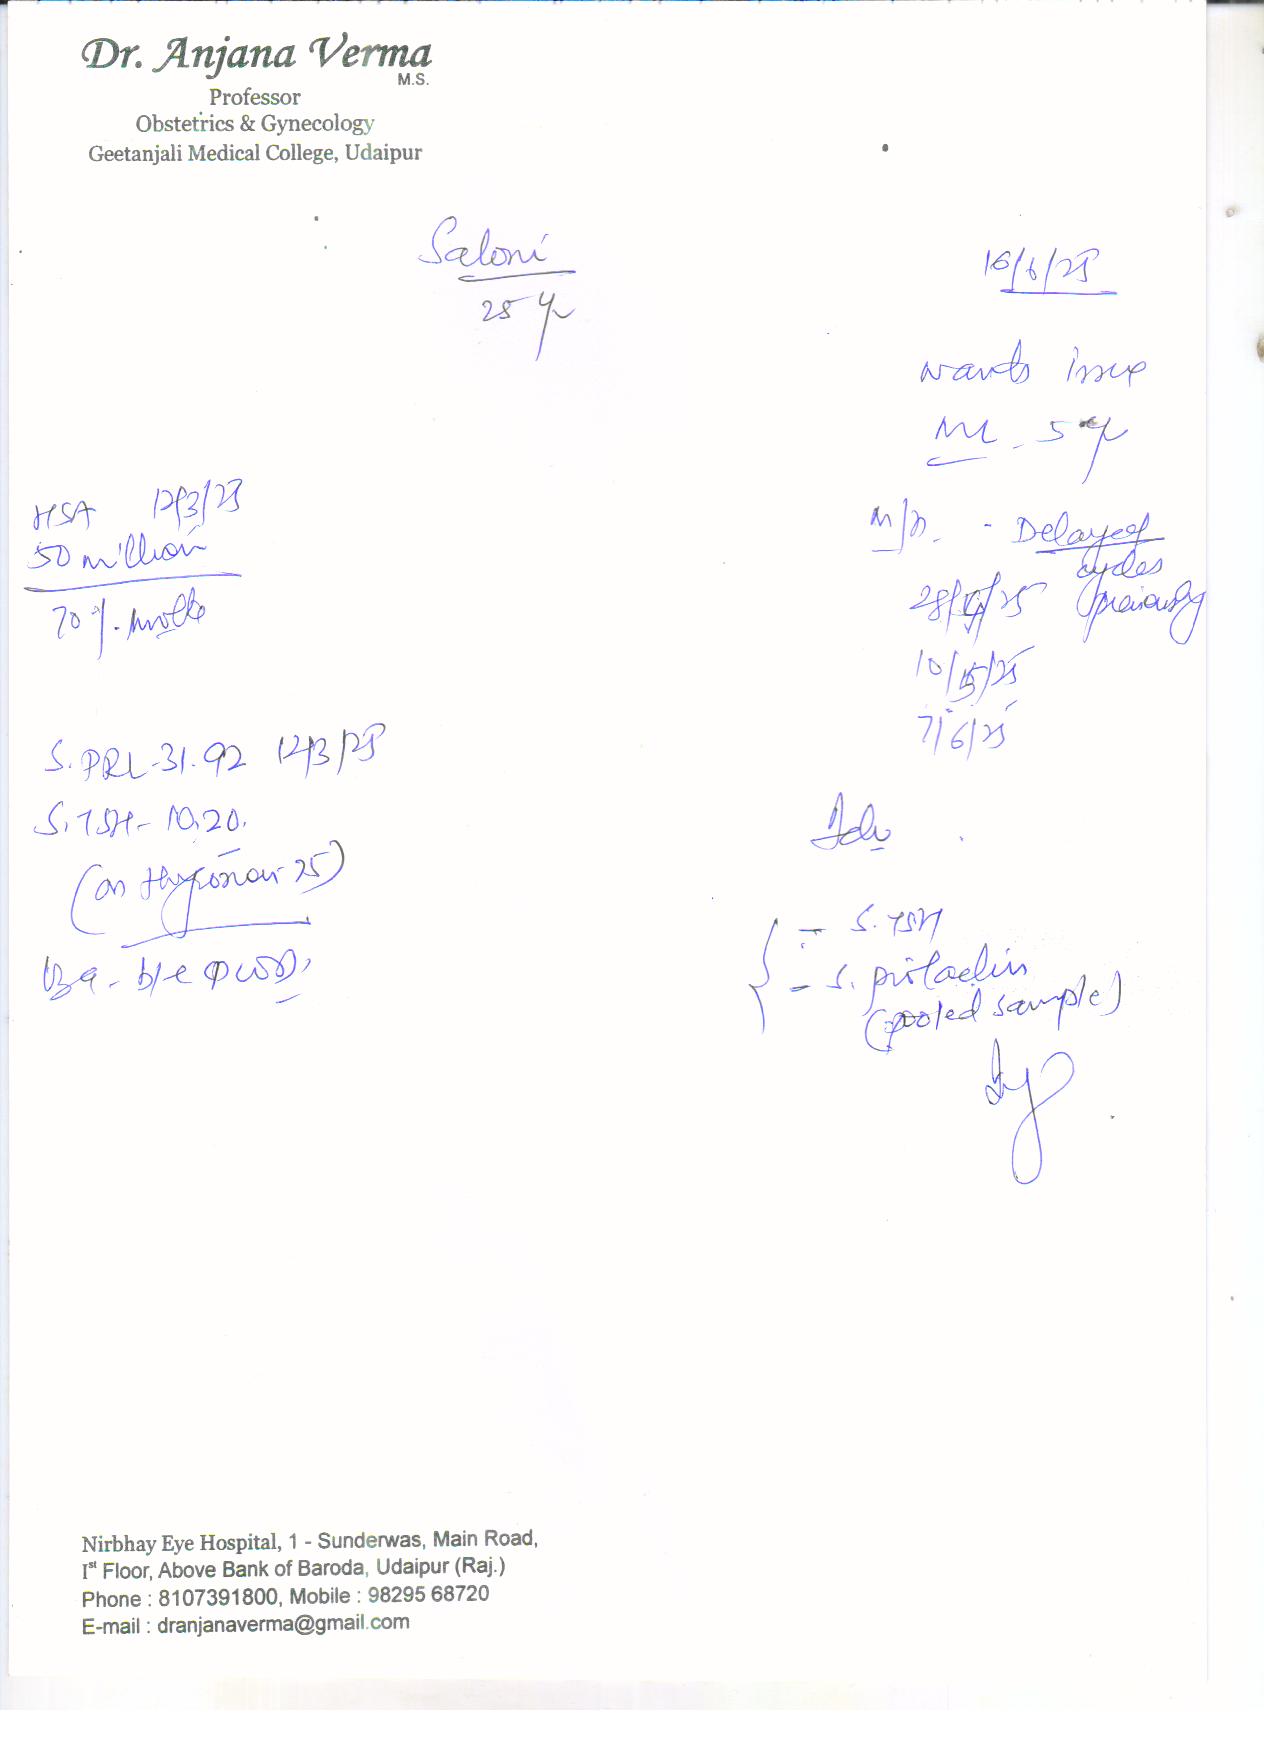 Dr. Anjana Verma
M.S.
Professor
Obstetrics & Gynecology
Geetanjali Medical College, Udaipur
Saloni
25 yr
16/6/25
wants issue
ML - 5 yr
M/H. - Delayed
cycles
(previously
28/4/25
10/5/25
7/6/25
HSA 12/3/25
50 million
70%. motile
S. PRL - 31.92 12/3/25
S. TSH - 10.20.
(on thyronorm 25)
Adv
- S. TSH
- S. prolactin
(pooled sample)
Nirbhay Eye Hospital, 1 - Sunderwas, Main Road,
Ist Floor, Above Bank of Baroda, Udaipur (Raj.)
Phone : 8107391800, Mobile : 98295 68720
E-mail : dranjanaverma@gmail.com